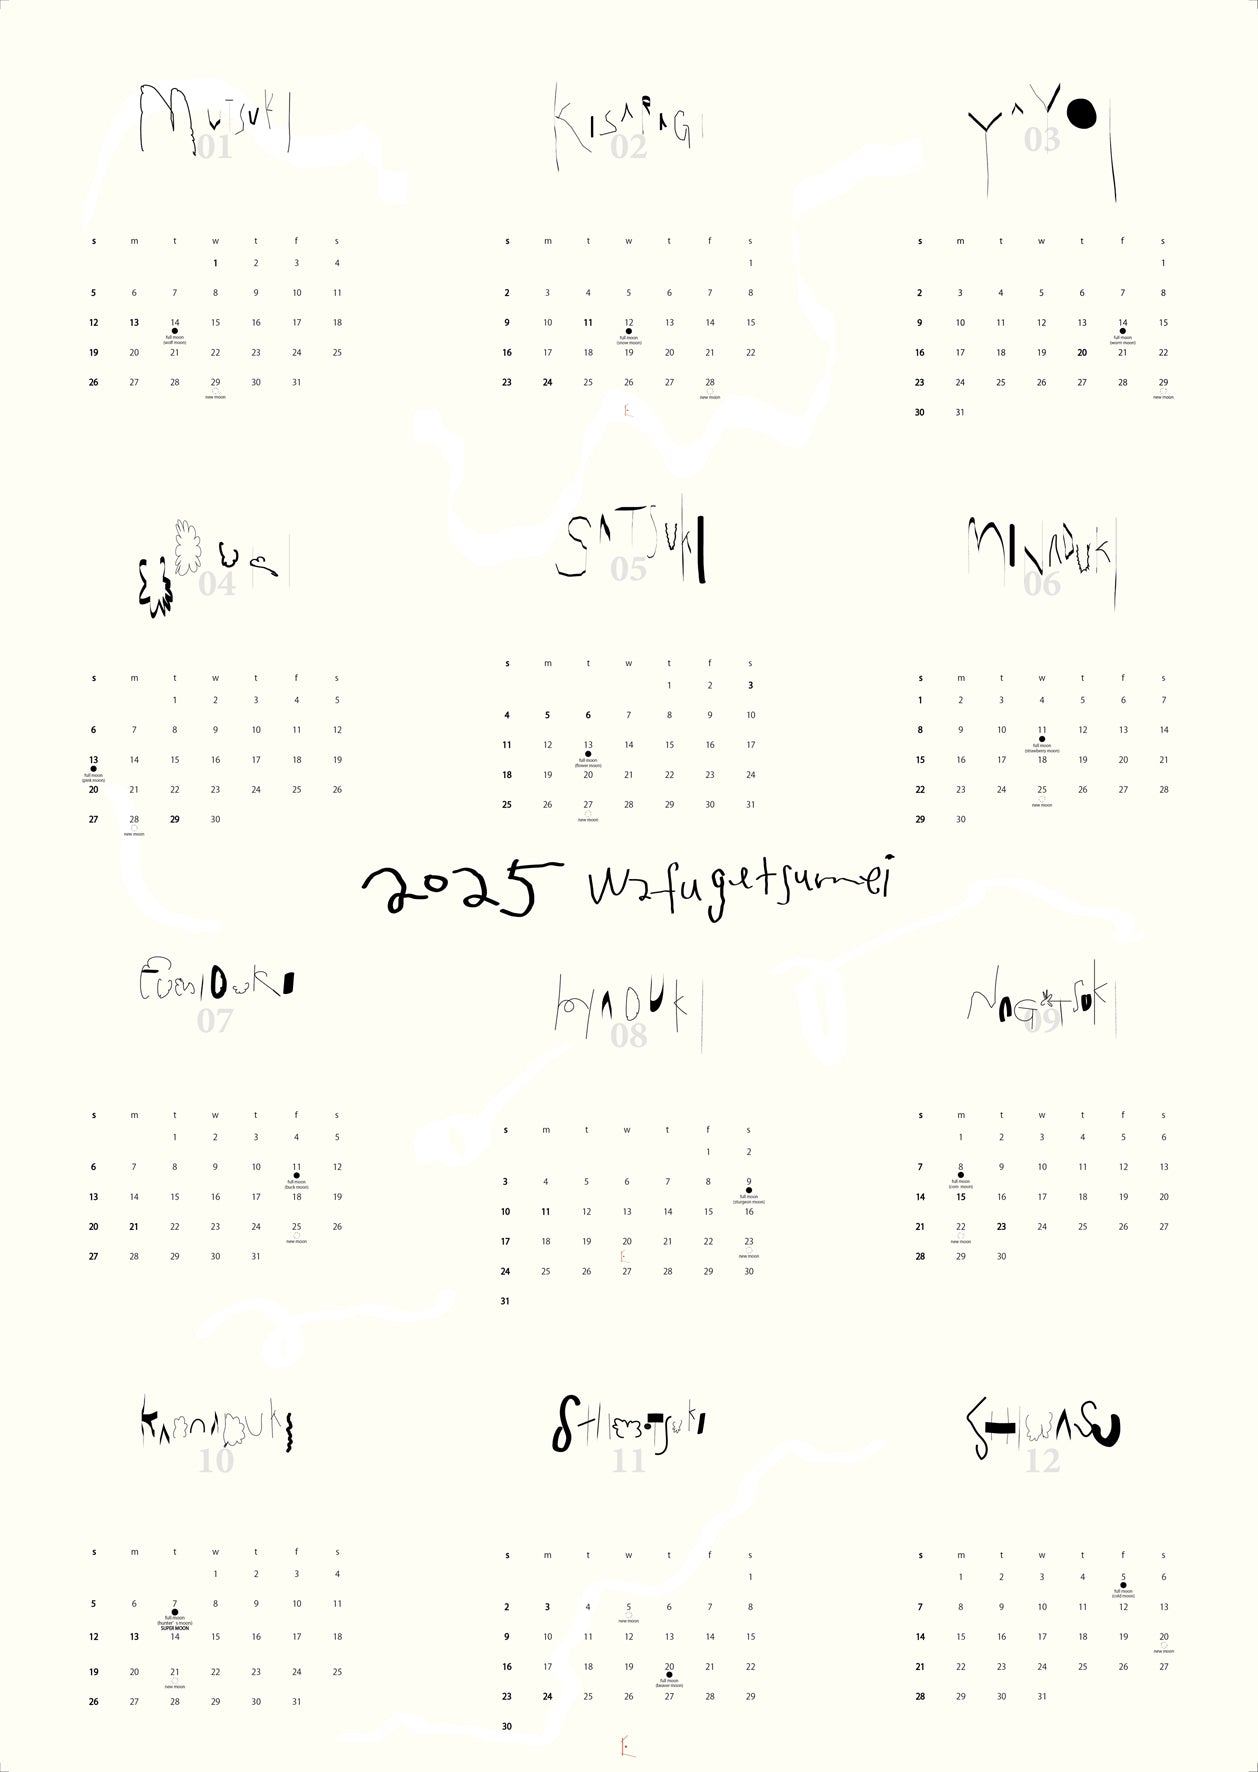 MUTSUKI
01
s m t w t f s
1 2 3 4
5 6 7 8 9 10 11
12 13 14 15 16 17 18
full moon
(wolf moon)
19 20 21 22 23 24 25
26 27 28 29 30 31
new moon
KISARAGI
02
s m t w t f s
1
2 3 4 5 6 7 8
9 10 11 12 13 14 15
full moon
(snow moon)
16 17 18 19 20 21 22
23 24 25 26 27 28
new moon
E
YAYOI
03
s m t w t f s
1
2 3 4 5 6 7 8
9 10 11 12 13 14 15
full moon
(warm moon)
16 17 18 19 20 21 22
23 24 25 26 27 28 29
new moon
30 31
04
s m t w t f s
1 2 3 4 5
6 7 8 9 10 11 12
13 14 15 16 17 18 19
full moon
(pink moon)
20 21 22 23 24 25 26
27 28 29 30
new moon
SATSUKI
05
s m t w t f s
1 2 3
4 5 6 7 8 9 10
11 12 13 14 15 16 17
full moon
(flower moon)
18 19 20 21 22 23 24
25 26 27 28 29 30 31
new moon
MINADUKI
06
s m t w t f s
1 2 3 4 5 6 7
8 9 10 11 12 13 14
full moon
(strawberry moon)
15 16 17 18 19 20 21
22 23 24 25 26 27 28
new moon
29 30
2025 Wafugetsumei
07
s m t w t f s
1 2 3 4 5
6 7 8 9 10 11 12
full moon
(buck moon)
13 14 15 16 17 18 19
20 21 22 23 24 25 26
new moon
27 28 29 30 31
HADUKI
08
s m t w t f s
1 2
3 4 5 6 7 8 9
full moon
(sturgeon moon)
10 11 12 13 14 15 16
17 18 19 20 21 22 23
E
new moon
24 25 26 27 28 29 30
31
NAGATSUKI
09
s m t w t f s
1 2 3 4 5 6
7 8 9 10 11 12 13
full moon
(corn moon)
14 15 16 17 18 19 20
21 22 23 24 25 26 27
new moon
28 29 30
KANNADUKI
10
s m t w t f s
1 2 3 4
5 6 7 8 9 10 11
full moon
(hunter's moon)
SUPER MOON
12 13 14 15 16 17 18
19 20 21 22 23 24 25
new moon
26 27 28 29 30 31
SHIMOTSUKI
11
s m t w t f s
1
2 3 4 5 6 7 8
new moon
9 10 11 12 13 14 15
16 17 18 19 20 21 22
full moon
(beaver moon)
23 24 25 26 27 28 29
30
E
SHIWASU
12
s m t w t f s
1 2 3 4 5 6
full moon
(cold moon)
7 8 9 10 11 12 13
14 15 16 17 18 19 20
new moon
21 22 23 24 25 26 27
28 29 30 31